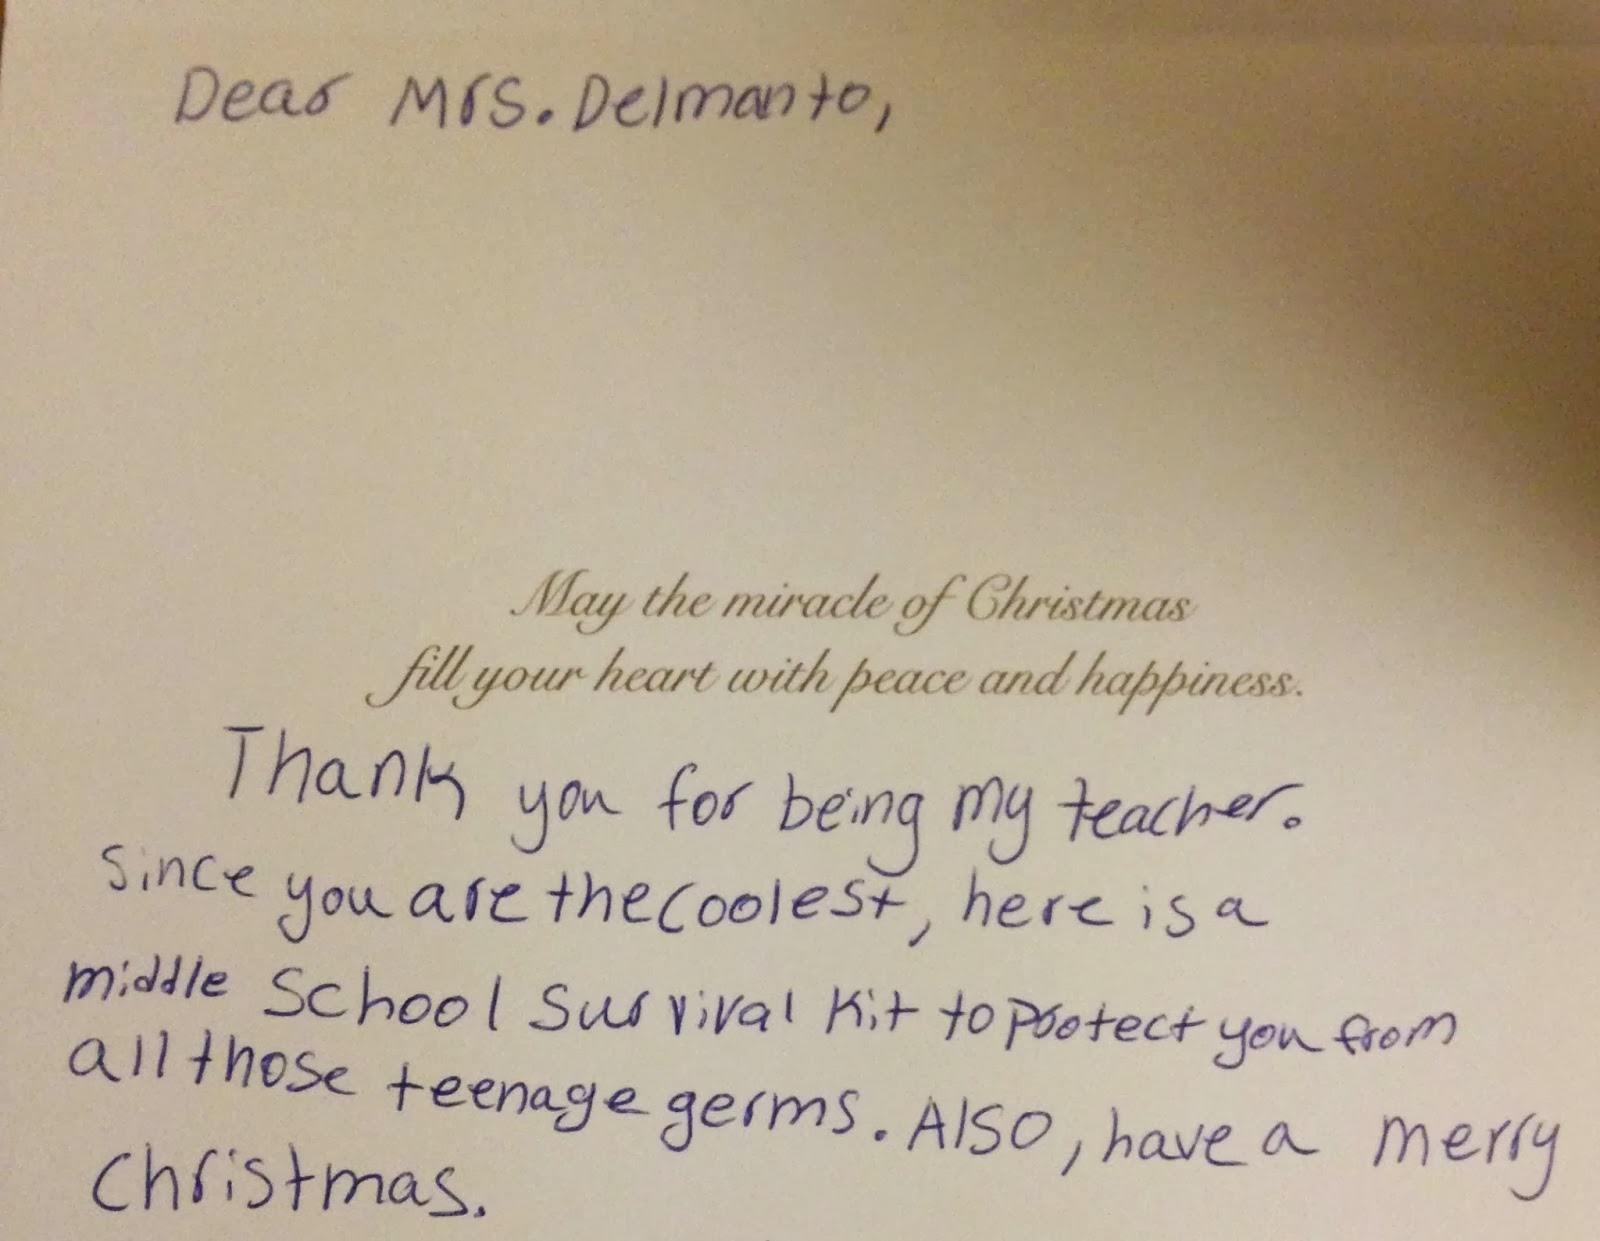 Dear Mrs. Delmanto,
May the miracle of Christmas
fill your heart with peace and happiness.
Thank you for being my teacher.
Since you are the coolest, here is a
middle School Survival Kit to protect you from
all those teenage germs. Also, have a merry
Christmas.